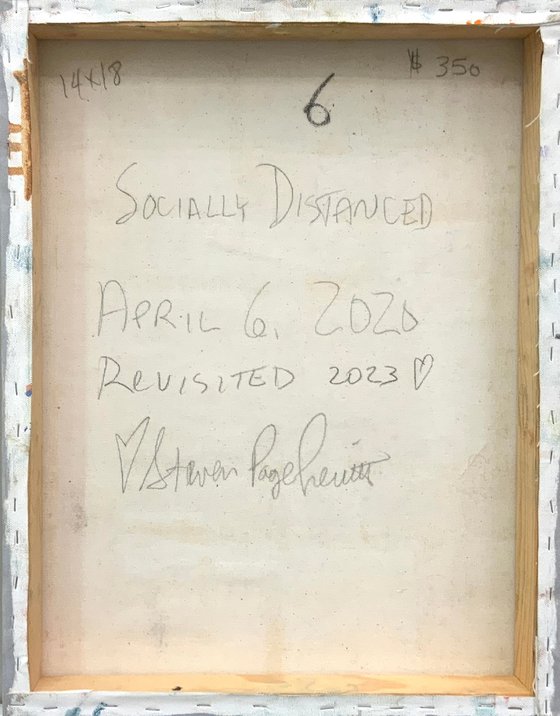 14x18
$ 350
6
SOCIALLY DISTANCED
APRIL 6, 2020
REVISITED 2023 ♡
♡ Steven Page Prewitt